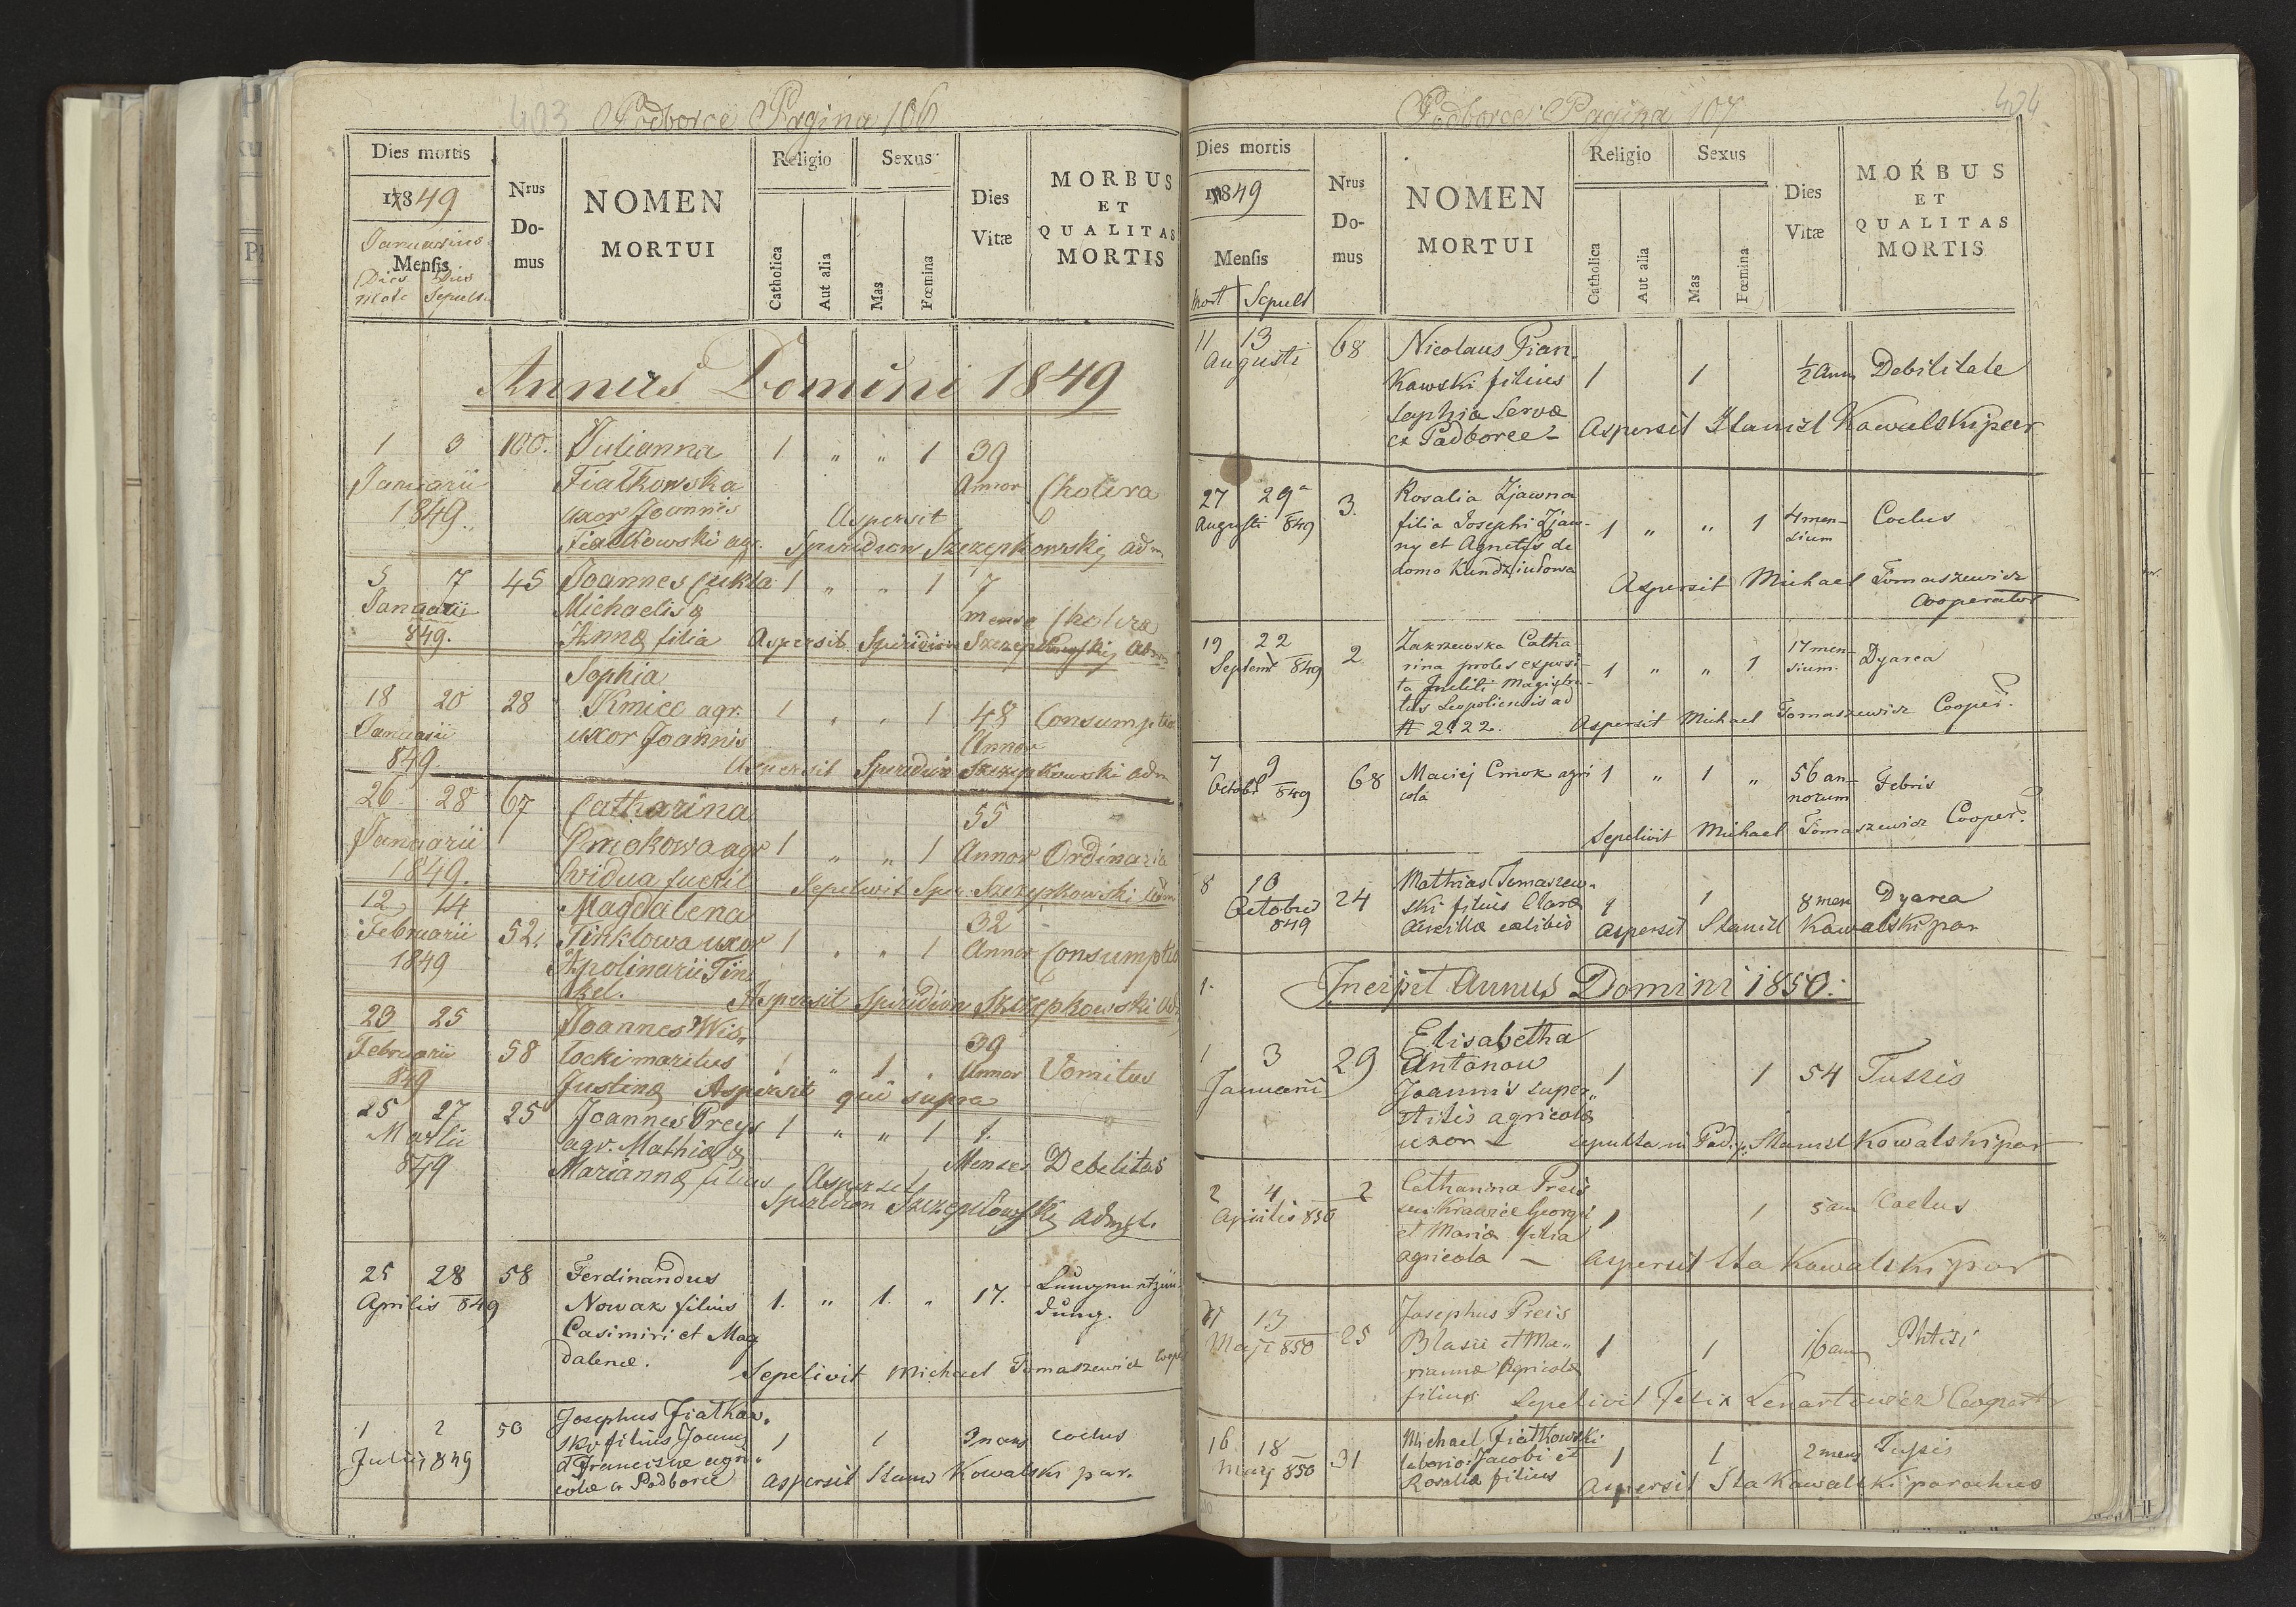 403 Podborce Pagina 106
Dies mortis
1849
Januarius
Mensis
Dies Dies
mort Sepult.
Nrus
Do-
mus
NOMEN
MORTUI
Religio
Catholica
Aut alia
Sexus
Mas
Fœmina
Dies
Vitæ
MORBUS
ET
QUALITAS
MORTIS
Annus Domini 1849
1 3 100. Julianna 1 " " 1 39
Januarii Fiałkowska Annor Cholera
1849. uxor Joannis Aspersit
Fiałkowski agr. Spiridion Szczepkowskij adm
5 7 45 Joannes Cukla 1 " " 1 7
Januarii Michaelis & mense Cholera
849. Annæ filia Aspersit Spiridion Szczepkowskij Adm
Sophia
18 20 28 Kmiec agr. 1 " " 1 48 Consumptio
Januarii uxor Joannis Annor
849. Aspersit Spiridion Szczepkowski adm
26 28 67 Catharina 55
Januarii Cmokowa agr 1 " " 1 Annor Ordinaria
1849. Vidua fuerit Sepelivit Spir. Szczepkowski adm
12 14 Magdalena 32
Februarii 52. Tinklowa uxor 1 " " 1 Annor Consumptio
1849 Apolinarii Tin
kel. Aspersit Spiridion Szczepkowski ad
23 25 Joannes Wis, 39
Februarii 58 locki maritus 1 " 1 " Annor Vomitus
849 Justinæ Aspersit qui supra
25 27 25 Joannes Preys 1 " " 1 1.
Martii agr. Mathiæ & Menses Debilitas
849 Mariannæ filius Aspersit
Spiridion Szczepkowskij Admst.
25 28 58 Ferdinandus
Aprilis 849 Nowak filius 1. " 1. " 17. Lungenentzün-
Casimiri et Mag dung.
dalenæ.
Sepelivit Michael Tomaszewicz Coope
1 2 50 Josephus Fiałkow.
Julii 849 ski filius Joannis 1 1 3 mens coctus
et Franciscæ agri"
colæ ex Podborce aspersit Stanis Kowalski par.
Podborce Pagina 107 404
Dies mortis
1849
Mensis
mort Sepult
Nrus
Do-
mus
NOMEN
MORTUI
Religio
Catholica
Aut alia
Sexus
Mas
Fœmina
Dies
Vitæ
MORBUS
ET
QUALITAS
MORTIS
11 13 68 Nicolaus Pian.
Augusti kowski filius 1 1 ½ Ann Debilitate
Sophiæ servæ
ex Podborce - Aspersit Stanisl Kowalski par
27 29 3. Rosalia Zjawna
Augusti 849 filia Josephi Zjaw- 1 " " 1 4 men- Coctus
ny et Agnetis de sium
domo Kundziudowa
Aspersit Michael Tomaszewicz
Cooperator
19 22 2 Zakrzewska Catha-
Septemb 849 rina proles exposi- 1 " " 1 17 men- Dyarea
ta Incliti Magistra- sium.
tus Leopoliensis ad
# 2122. Aspersit Michael Tomaszewicz Cooper.
7 9 68 Maciej Cmok agri 1 " 1 " 56 an- Febris
Octobr 849 cola norum
Sepelivit Michael Tomaszewicz Cooper.
8 10 24 Mathias Tomaszew-
Octobris ski filius Claræ 1 1 8 men Dyarea
849 ancillæ celibis Aspersit Stanisl Kowalski par
1. Incipit Annus Domini 1850.
1 3 29 Elisabetha
Januarii Antonow
Joannis super" 1 1 54 Tussis
stitis agricolæ
uxor - sepulta in Pod. p. Stanisl Kowalski par
2 4 2 Catharina Preis
Aprilis 850 seu Krawiec Georgii 1 1 5 ann Coctus
et Mariæ filia
agricola - aspersit Sta Kowalski par
11 13 25 Josephus Preis
Maji 850 Blasii et Ma" 1 1 16 ann Phtisi
riannæ Agricolæ
filius Sepelivit Felix Lenartowicz Cooperat
16 18 31 Michael Fiatkowski
Maij 850 laborio: Jacobi et 1 1 2 mens Tussis
Rosaliæ filius Aspersit Sta Kowalski parochus